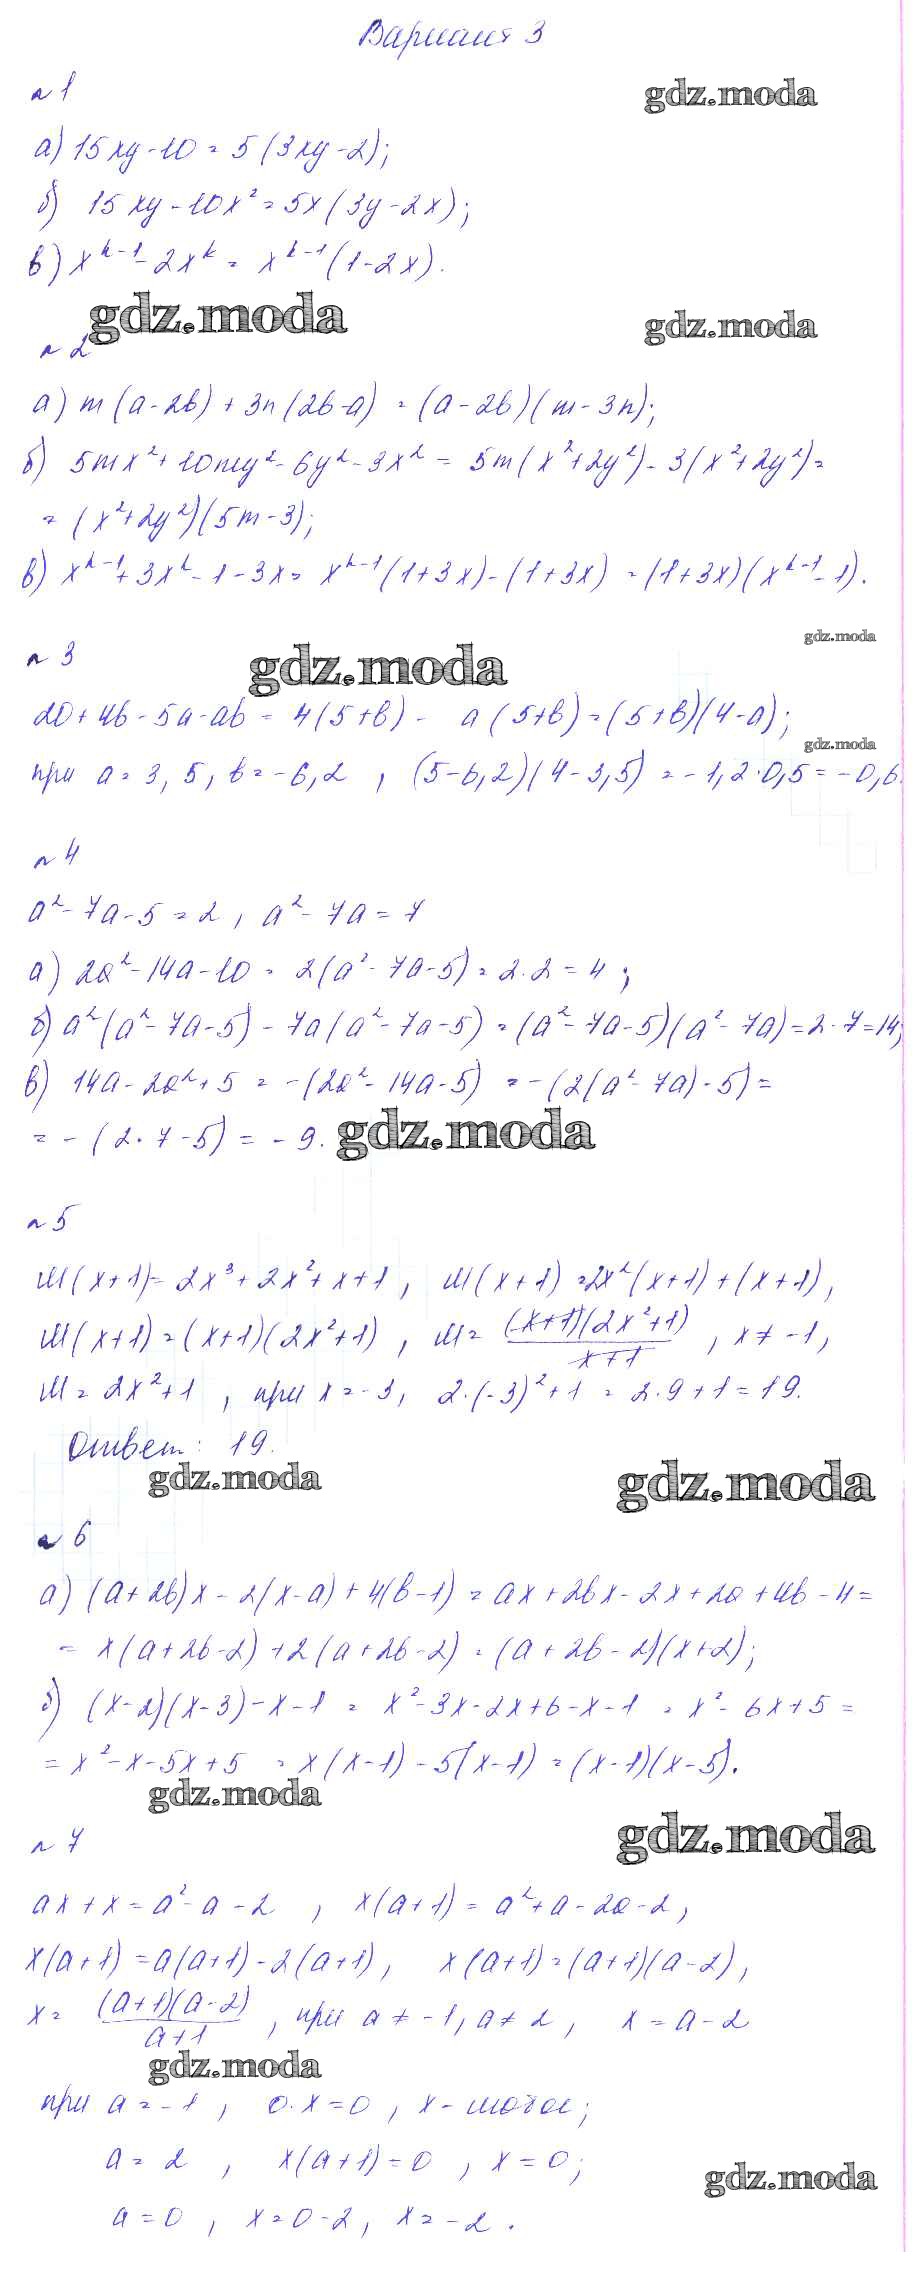 Вариант 3
№1
gdz.moda
а) 15xy-10 = 5(3xy-2);
б) 15xy-10x² = 5x(3y-2x);
в) x^(k-1) - 2x^k = x^(k-1)(1-2x).
gdz.moda
gdz.moda
№2
а) m(a-2b) + 3n(2b-a) = (a-2b)(m-3n);
б) 5mx² + 10my² - 6y² - 3x² = 5m(x²+2y²) - 3(x²+2y²) =
= (x²+2y²)(5m-3);
в) x^(k-1) + 3x^k - 1 - 3x = x^(k-1)(1+3x) - (1+3x) = (1+3x)(x^(k-1) - 1).
gdz.moda
№3
gdz.moda
20+4b-5a-ab = 4(5+b) - a(5+b) = (5+b)(4-a);
gdz.moda
при a=3,5, b=-6,2, (5-6,2)(4-3,5) = -1,2·0,5 = -0,6.
№4
a²-7a-5=2, a²-7a=7
а) 2a²-14a-10 = 2(a²-7a-5) = 2·2 = 4;
б) a²(a²-7a-5) - 7a(a²-7a-5) = (a²-7a-5)(a²-7a) = 2·7 = 14;
в) 14a-2a²+5 = -(2a²-14a-5) = -(2(a²-7a)-5) =
= -(2·7-5) = -9.
gdz.moda
№5
M(x+1) = 2x³+2x²+x+1, M(x+1) = 2x²(x+1)+(x+1),
M(x+1) = (x+1)(2x²+1), M = (x+1)(2x²+1)/(x+1), x≠-1,
M = 2x²+1, при x=-3, 2·(-3)²+1 = 2·9+1 = 19.
Ответ: 19.
gdz.moda
gdz.moda
№6
а) (a+2b)x - 2(x-a) + 4(b-1) = ax+2bx-2x+2a+4b-4 =
= x(a+2b-2)+2(a+2b-2) = (a+2b-2)(x+2);
б) (x-2)(x-3)-x-1 = x²-3x-2x+6-x-1 = x²-6x+5 =
= x²-x-5x+5 = x(x-1)-5(x-1) = (x-1)(x-5).
gdz.moda
gdz.moda
№7
ax+x = a²-a-2, x(a+1) = a²+a-2a-2,
x(a+1) = a(a+1)-2(a+1), x(a+1) = (a+1)(a-2),
x = (a+1)(a-2)/(a+1), при a≠-1, a≠2, x=a-2
gdz.moda
при a=-1, 0·x=0, x-любое;
a=2, x(a+1)=0, x=0;
gdz.moda
a=0, x=0-2, x=-2.